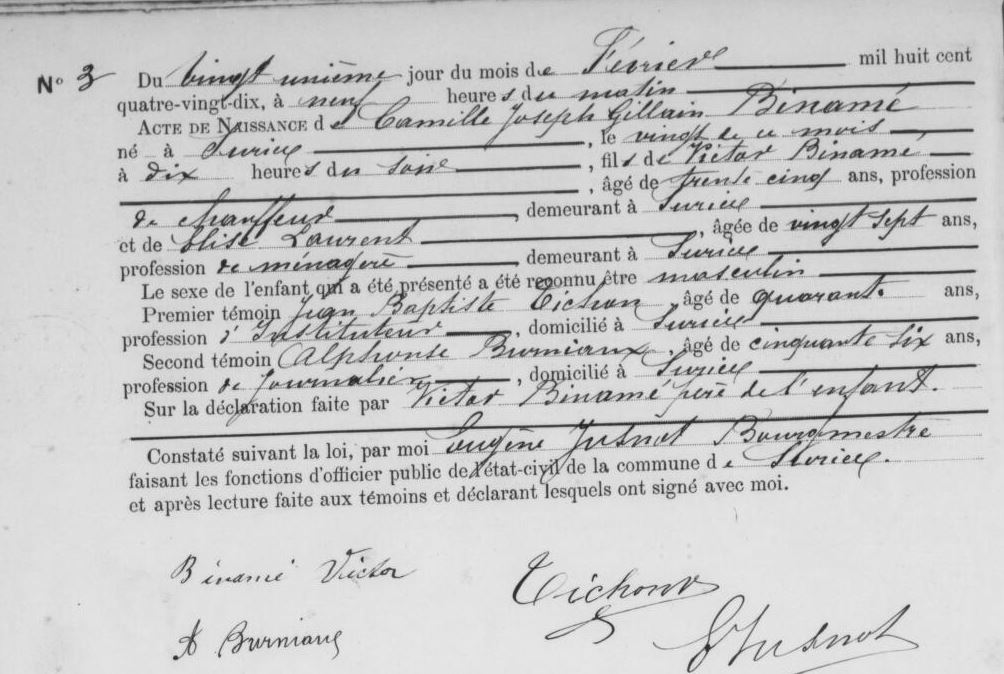 N° 3 Du vingt unième jour du mois de Février mil huit cent
quatre-vingt-dix, à neuf heures du matin
ACTE DE NAISSANCE de Camille Joseph Gillain Binamé
né à Surice, le vingt de ce mois
à dix heures du soir, fils de Victor Binamé
, âgé de trente cinq ans, profession
de chauffeur, demeurant à Surice
et de Elise Laurent, âgée de vingt sept ans,
profession de ménagère demeurant à Surice
Le sexe de l'enfant qui a été présenté a été reconnu être masculin
Premier témoin Jean Baptiste Tichon, âgé de quarante ans,
profession d'Instituteur, domicilié à Surice
Second témoin Alphonse Burniaux, âgé de cinquante six ans,
profession de Journalier, domicilié à Surice
Sur la déclaration faite par Victor Binamé père de l'enfant.
Constaté suivant la loi, par moi Eugène Jusnot Bourgmestre
faisant les fonctions d'officier public de l'état-civil de la commune de Surice.
et après lecture faite aux témoins et déclarant lesquels ont signé avec moi.
Binamé Victor
Tichon
A Burniaux
E Jusnot